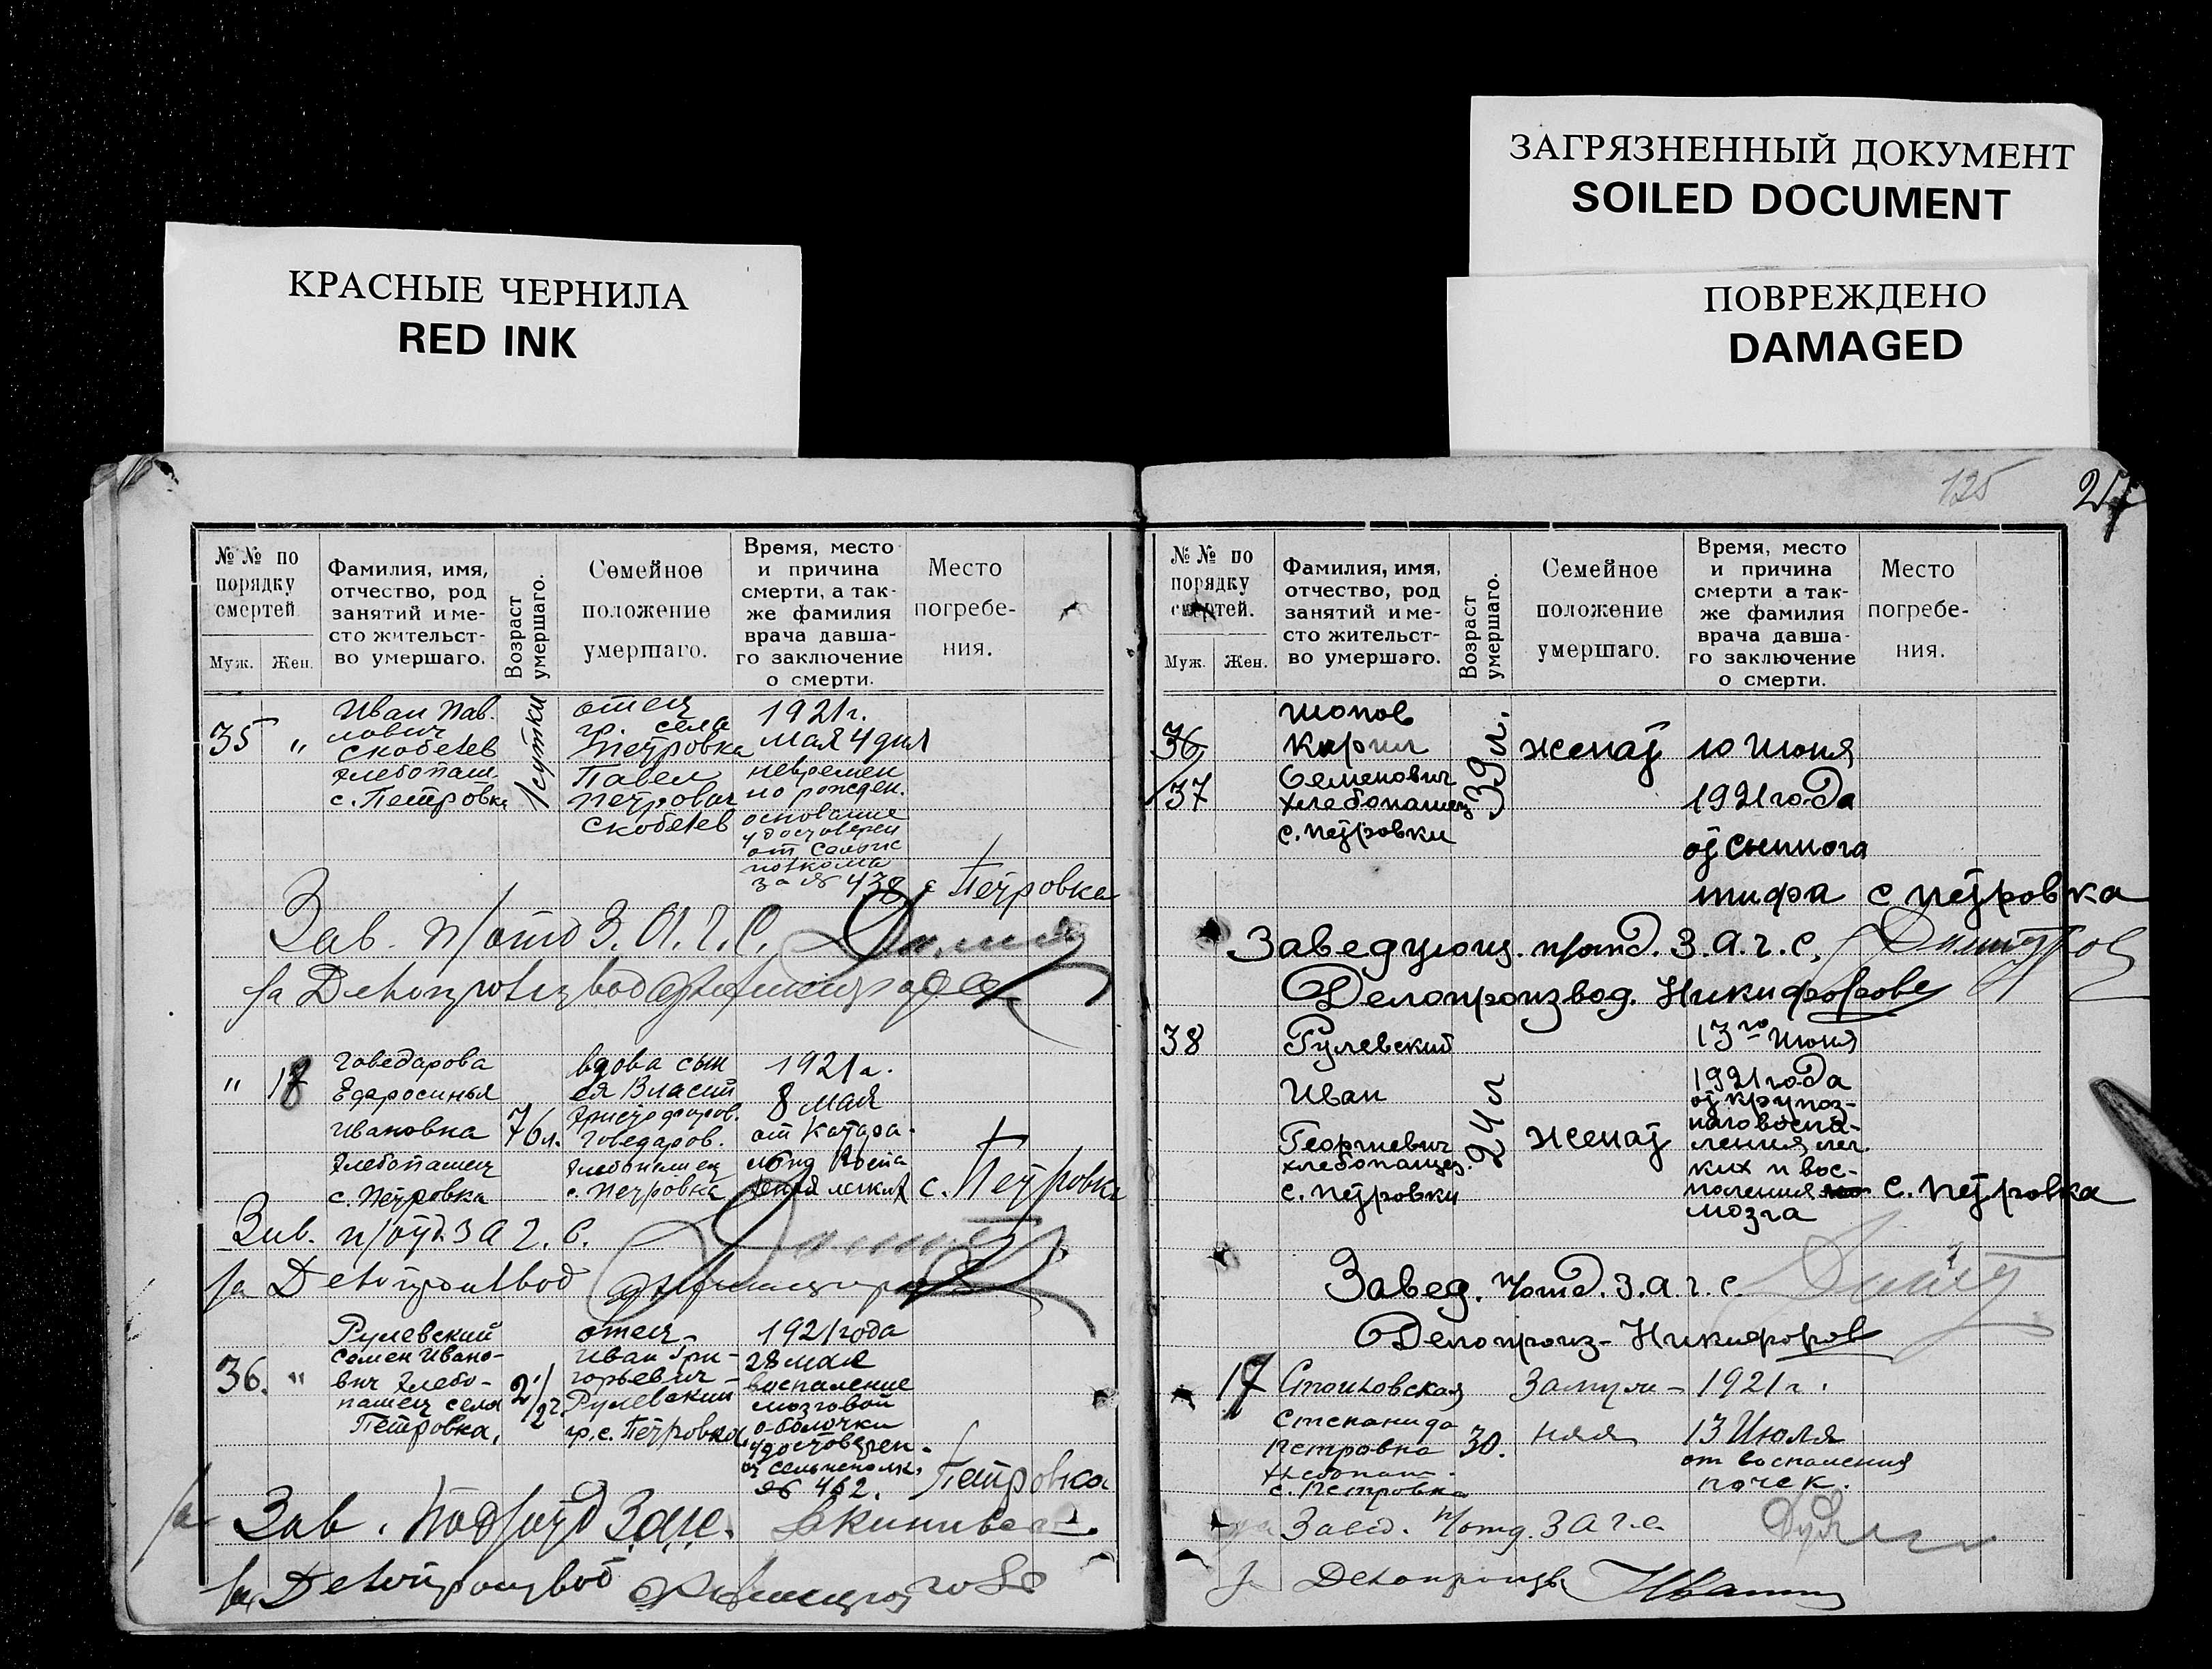 ЗАГРЯЗНЕННЫЙ ДОКУМЕНТ
SOILED DOCUMENT
КРАСНЫЕ ЧЕРНИЛА
RED INK
ПОВРЕЖДЕНО
DAMAGED
№ № по порядку смертей
Муж. Жен.
Фамилия, имя,
отчество, род
занятий и ме-
сто жительст-
во умершаго.
Возраст
умершаго.
Семейное
положение
умершаго.
Время, место
и причина
смерти, а так-
же фамилия
врача давша-
го заключение
о смерти.
Место
погребе-
ния.
35 "
Иван Пав.
лович
Скобелев
хлебопаш.
с. Петровка
1 сутки
отец
гр. села
Петровка
Павел
Петрович
Скобелев
1921 г.
мая 4 дня
невремен
но рожден.
основание
удостоверен
от Сельис
полкома
за № 438
с Петровка
Зав. п/отд З. А. Г. С.
за Делопроизвод
" 18
Говедарова
Ефросинья
Ивановна
хлебопашец
с. Петровка
76 л.
вдова сын
ея Власий
Христофоров.
Говедаров.
хлебопашец
с. Петровка
1921 г.
8 мая
от Катара-
легких
с. Петровка
Зав. п/отд. З А Г. С.
за Делопроизвод
36. "
Рулевский
Семен Ивано-
вич хлебо-
пашец села
Петровка,
2 1/2 г.
отец-
Иван Гри-
горьевич-
Рулевский
гр. с. Петровка
1921 года
28 мая
воспаление
мозговой
оболочки
удостоверен-
от сельисполк.
№ 462.
Петровка
за Зав. Подотд Загс.
за Делопроизвод
125 27
№ № по
порядку
смертей.
Муж. Жен.
Фамилия, имя,
отчество, род
занятий и ме-
сто жительст-
во умершаго.
Возраст
умершаго.
Семейное
положение
умершаго.
Время, место
и причина
смерти а так-
же фамилия
врача давша-
го заключение
о смерти.
Место
погребе-
ния.
36
37
Кирил
Семенович
хлебопашец
с. Петровки
39 л.
женат
10 июня
1921 года
от сыпного
тифа
с Петровка
Заведующ. п/отд. З. А. Г. С,
Делопроизвод. Никифоров
38
Рулевский
Иван
Георгиевич
хлебопашец.
с. Петровки
24 л
женат
13го июня
1921 года
от крупоз-
наго воспа-
ления лег.
ких и вос-
паления
мозга
с. Петровка
Завед. п/отд. З. А. Г. С.
Делопроиз- Никифоров
17
Стоиловская
Степанида
Петровна
хлебопаш-
с. Петровка
30.
Замуж-
няя
1921 г.
13 Июля
от воспаления
почек.
Завед. п/отд. З А Г С.
за Делопроизв.